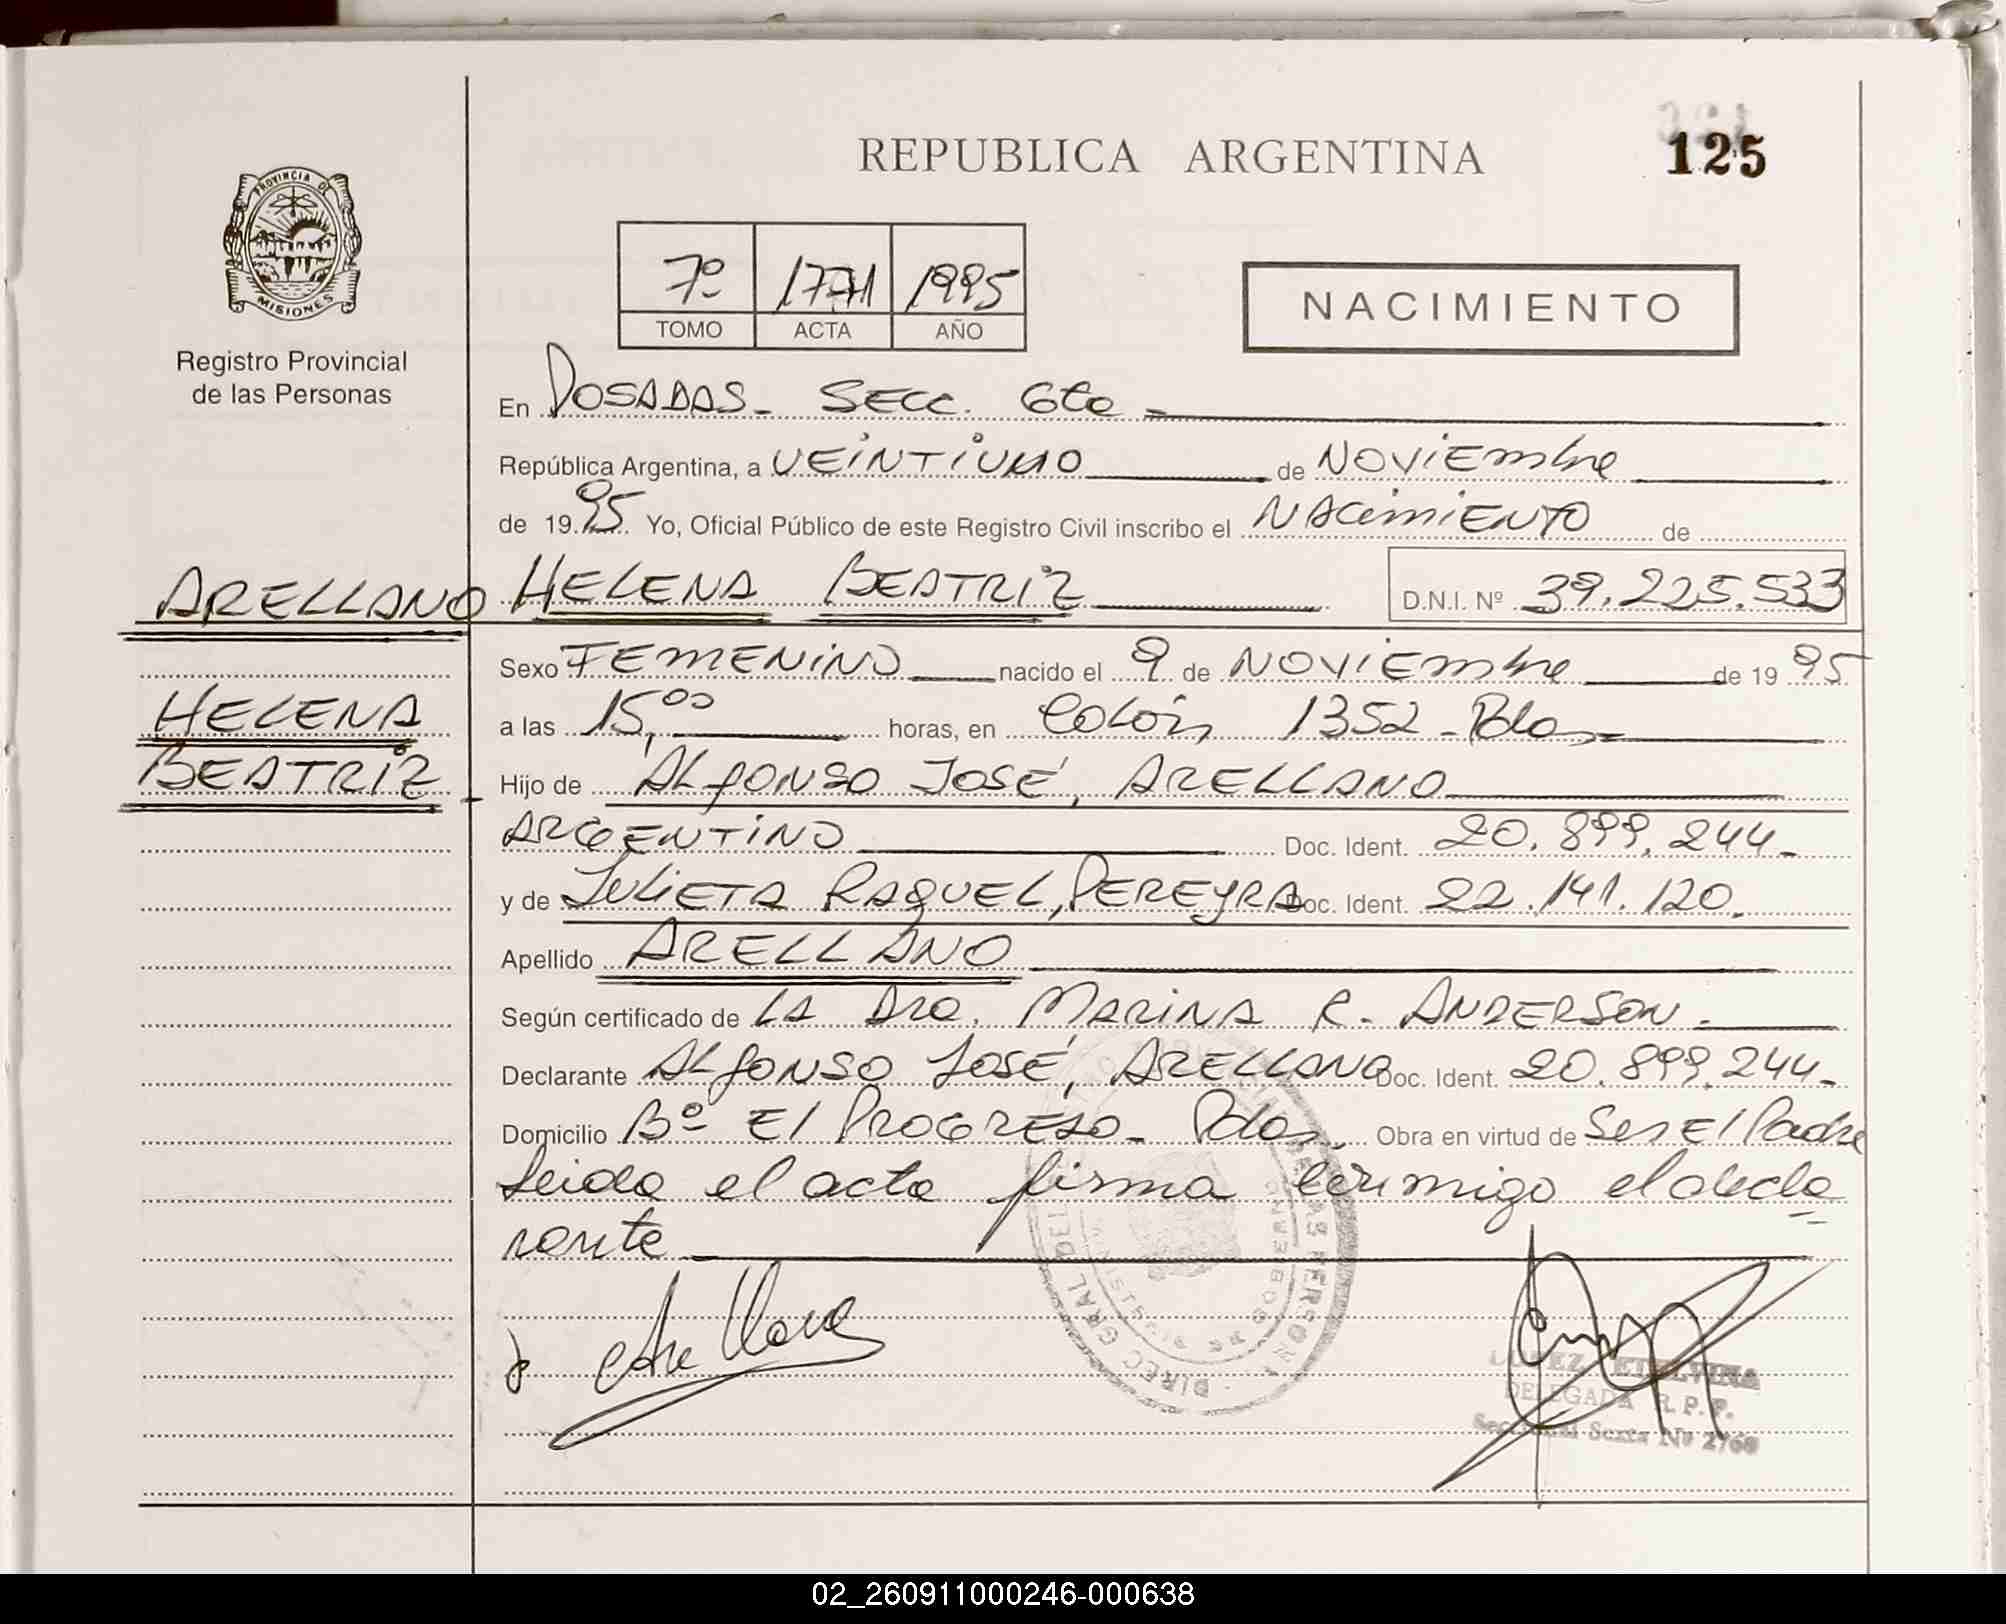 REPUBLICA ARGENTINA
125
PROVINCIA DE
MISIONES
Registro Provincial
de las Personas
7º 1771 1995
TOMO ACTA AÑO
NACIMIENTO
En POSADAS - SECC. 6ta -
República Argentina, a VEINTIUNO de NOVIEMbre
de 1995 Yo, Oficial Público de este Registro Civil inscribo el NACIMIENTO de
ARELLANO HELENA BEATRIZ D.N.I. Nº 39.225.533
Sexo FEMENINO nacido el 9 de NOVIEMbre de 1995
HELENA
a las 15,00 horas, en Colón 1352 - Pdas -
BEATRIZ
Hijo de ALfONSO JOSÉ, ARELLANO
ARGENTINO Doc. Ident. 20.899.244-
y de JULIETA RAQUEL, PEREYRA Doc. Ident. 22.141.120.
Apellido ARELLANO
Según certificado de LA Dra. MARINA R. ANDERSON.
Declarante ALfONSO JOSÉ, ARELLANO Doc. Ident. 20.899.244-
Domicilio Bº El PROGRESO - Pdas, Obra en virtud de Ser El Padre
Leida el acta firma conmigo el decla
rante
Arellano
DIREC. GRAL. DEL
LOPEZ ETELVINA
DELEGADA R.P.P.
Seccional Sexta Nº 2760
02_260911000246-000638